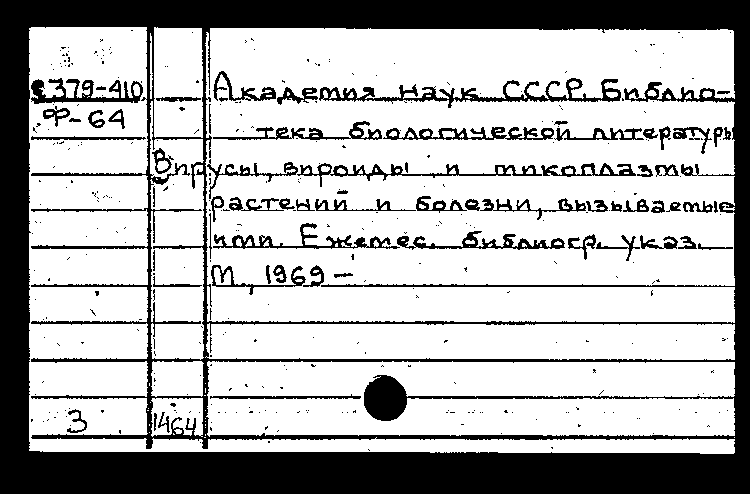 379-410
Ф-64
Академия наук СССР. Библио-
тека биологической литературы
Вирусы, вироиды и микоплазмы
растений и болезни, вызываемые
ими. Ежемес. библиогр. указ.
М., 1969 –
3
1464